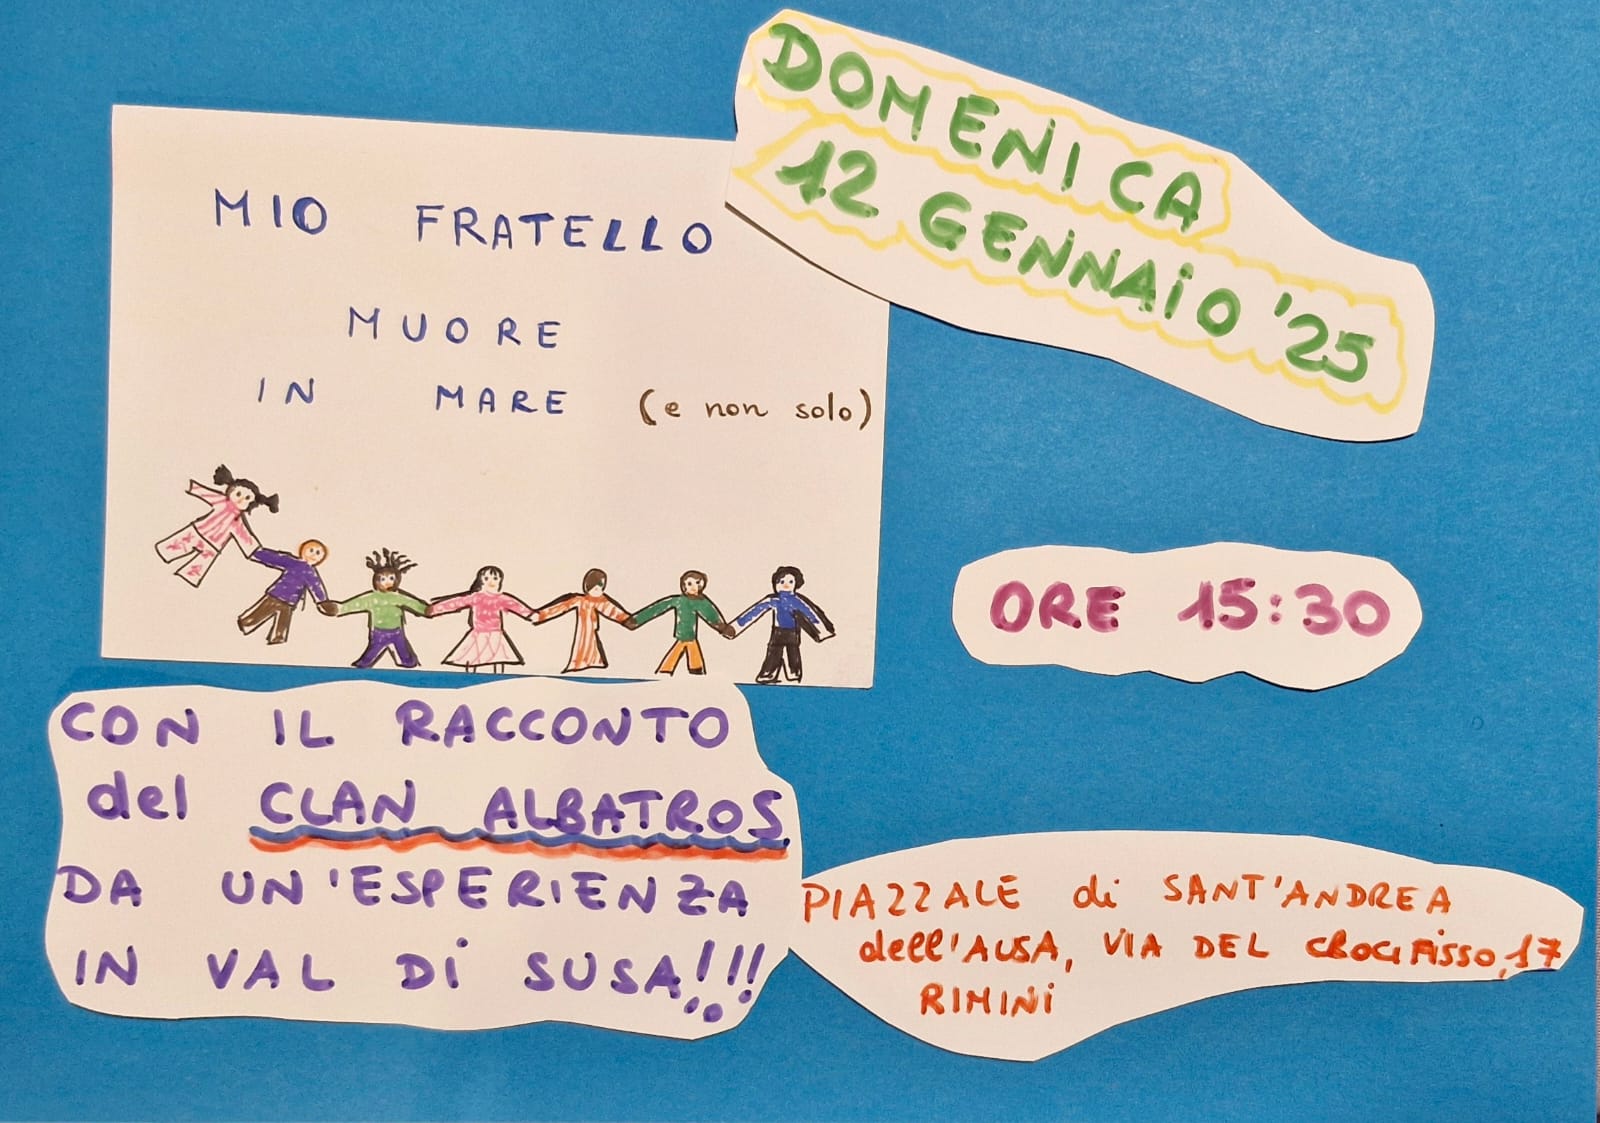 MIO FRATELLO
MUORE
IN MARE (e non solo)
DOMENICA
12 GENNAIO '25
ORE 15:30
CON IL RACCONTO
del CLAN ALBATROS
DA UN'ESPERIENZA
IN VAL DI SUSA!!!
PIAZZALE di SANT'ANDREA
dell'AUSA, VIA DEL CROCIFISSO, 17
RIMINI